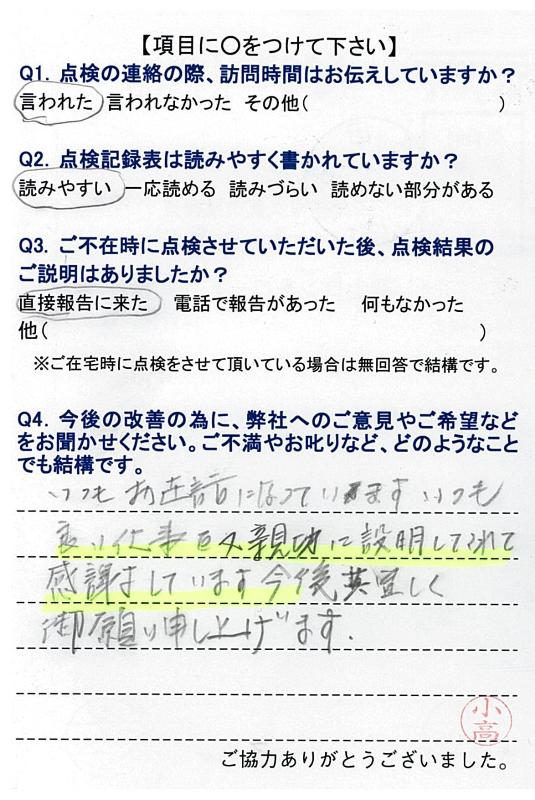 【項目に〇をつけて下さい】
Q1. 点検の連絡の際、訪問時間はお伝えしていますか？
言われた 言われなかった その他( )
Q2. 点検記録表は読みやすく書かれていますか？
読みやすい 一応読める 読みづらい 読めない部分がある
Q3. ご不在時に点検させていただいた後、点検結果の
ご説明はありましたか？
直接報告に来た 電話で報告があった 何もなかった
他( )
※ご在宅時に点検をさせて頂いている場合は無回答で結構です。
Q4. 今後の改善の為に、弊社へのご意見やご希望など
をお聞かせください。ご不満やお叱りなど、どのようなこと
でも結構です。
いつもお世話になっています いつも
良い仕事 又親切に説明してくれて
感謝をしています今後 宜しく
御願い申し上げます.
小高
ご協力ありがとうございました。